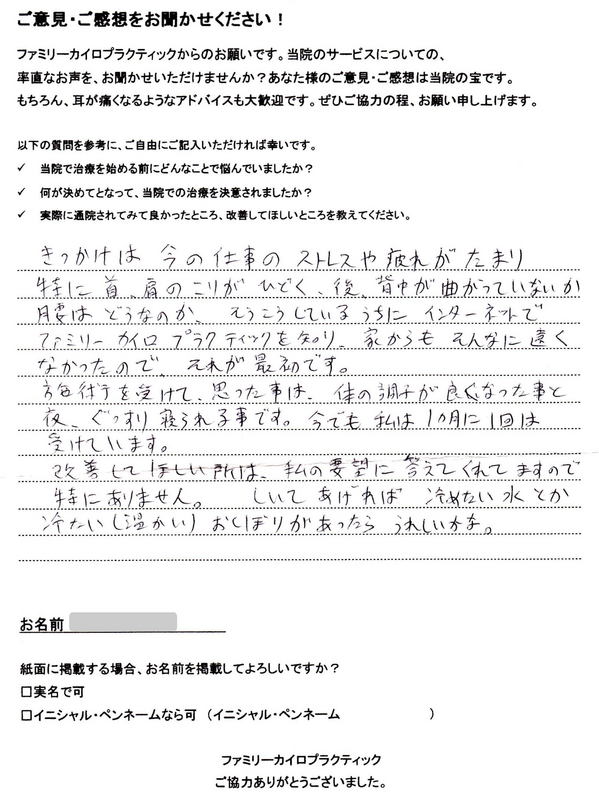 ご意見・ご感想をお聞かせください！
ファミリーカイロプラクティックからのお願いです。当院のサービスについての、
率直なお声を、お聞かせいただけませんか？あなた様のご意見・ご感想は当院の宝です。
もちろん、耳が痛くなるようなアドバイスも大歓迎です。ぜひご協力の程、お願い申し上げます。
以下の質問を参考に、ご自由にご記入いただければ幸いです。
✓ 当院で治療を始める前にどんなことで悩んでいましたか？
✓ 何が決めてとなって、当院での治療を決意されましたか？
✓ 実際に通院されてみて良かったところ、改善してほしいところを教えてください。
きっかけは 今の仕事の ストレスや疲れが たまり
特に 首、肩の こりが ひどく、後、背中が曲がっていないか
腰は どうなのか、そうこうしているうちに インターネットで
ファミリー カイロ プラクティックを知り、家からも そんなに遠く
なかったので、それが最初です。
施術を受けて、思った事は、体の調子が良くなった事と
夜、ぐっすり寝られる事です。今でも私は1カ月に1回は
受けています。
改善して ほしい所は、私の要望に答えてくれてますので
特にありません。 しいて あげれば 冷めたい水とか
冷たい（温かい）おしぼりがあったら うれしいかな。
お名前
紙面に掲載する場合、お名前を掲載してよろしいですか？
□実名で可
□イニシャル・ペンネームなら可 （イニシャル・ペンネーム ）
ファミリーカイロプラクティック
ご協力ありがとうございました。